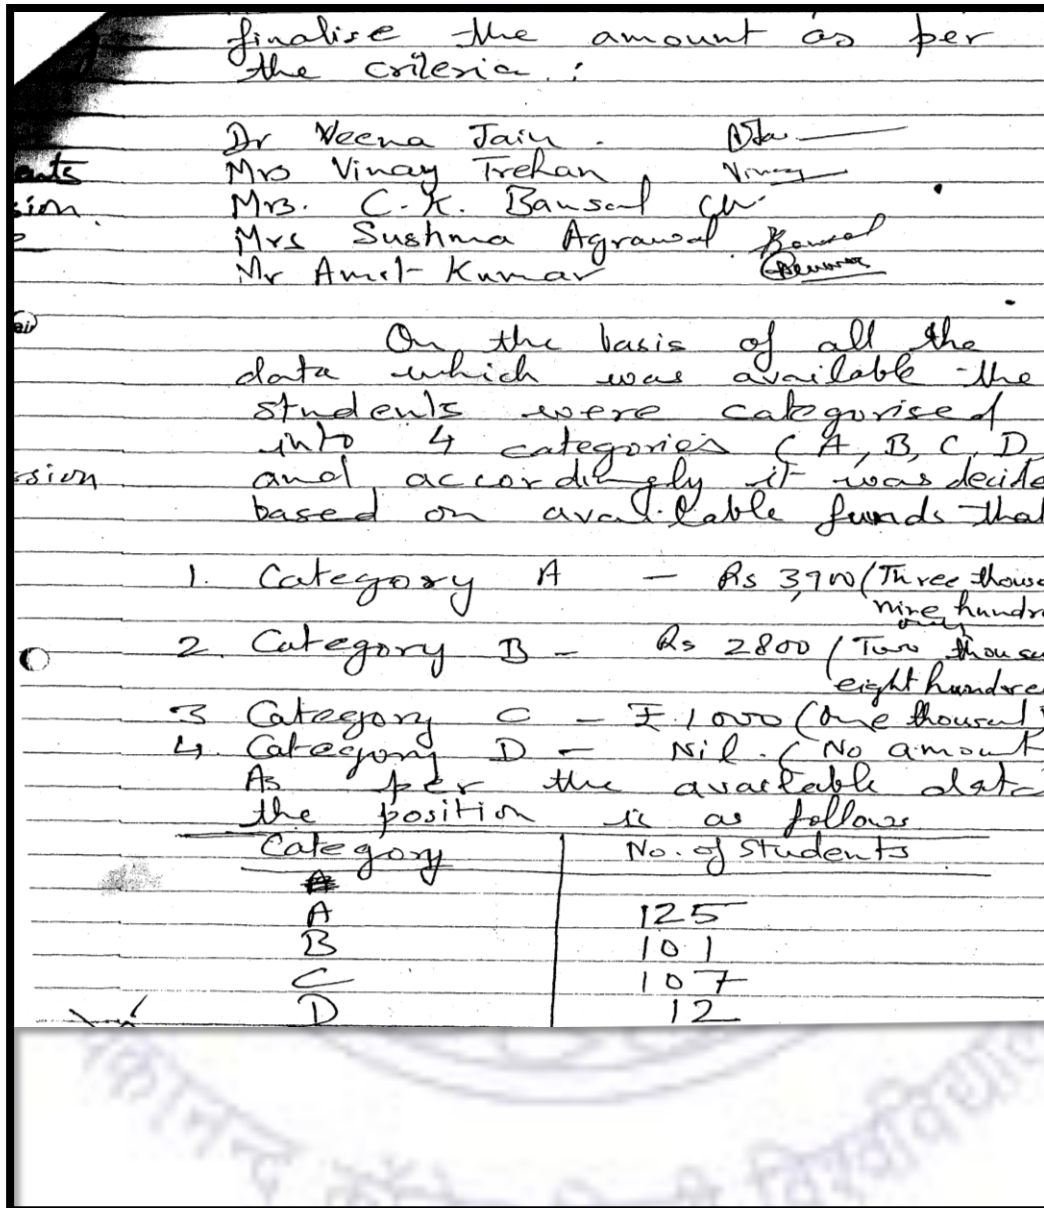 finalise the amount as per
the criteria :
Dr Veena Jain.
ents
Mrs Vinay Trehan Vinay
sion
Mrs. C.K. Bansal
Mrs Sushma Agrawal Bansal
Mr Amit Kumar
On the basis of all the
data which was available the
students were categorised
into 4 categories (A, B, C, D,
ssion and accordingly it was decide
based on available funds that
1. Category A - Rs 3,900 (Three thousa
nine hundre
only
2. Category B - Rs 2800 (Two thousa
eight hundre
3 Category C - ₹.1000 (One thousand)
4. Category D - Nil. (No amount
As per the available data
the position is as follows
Category No. of students
A 125
B 101
C 107
D 12